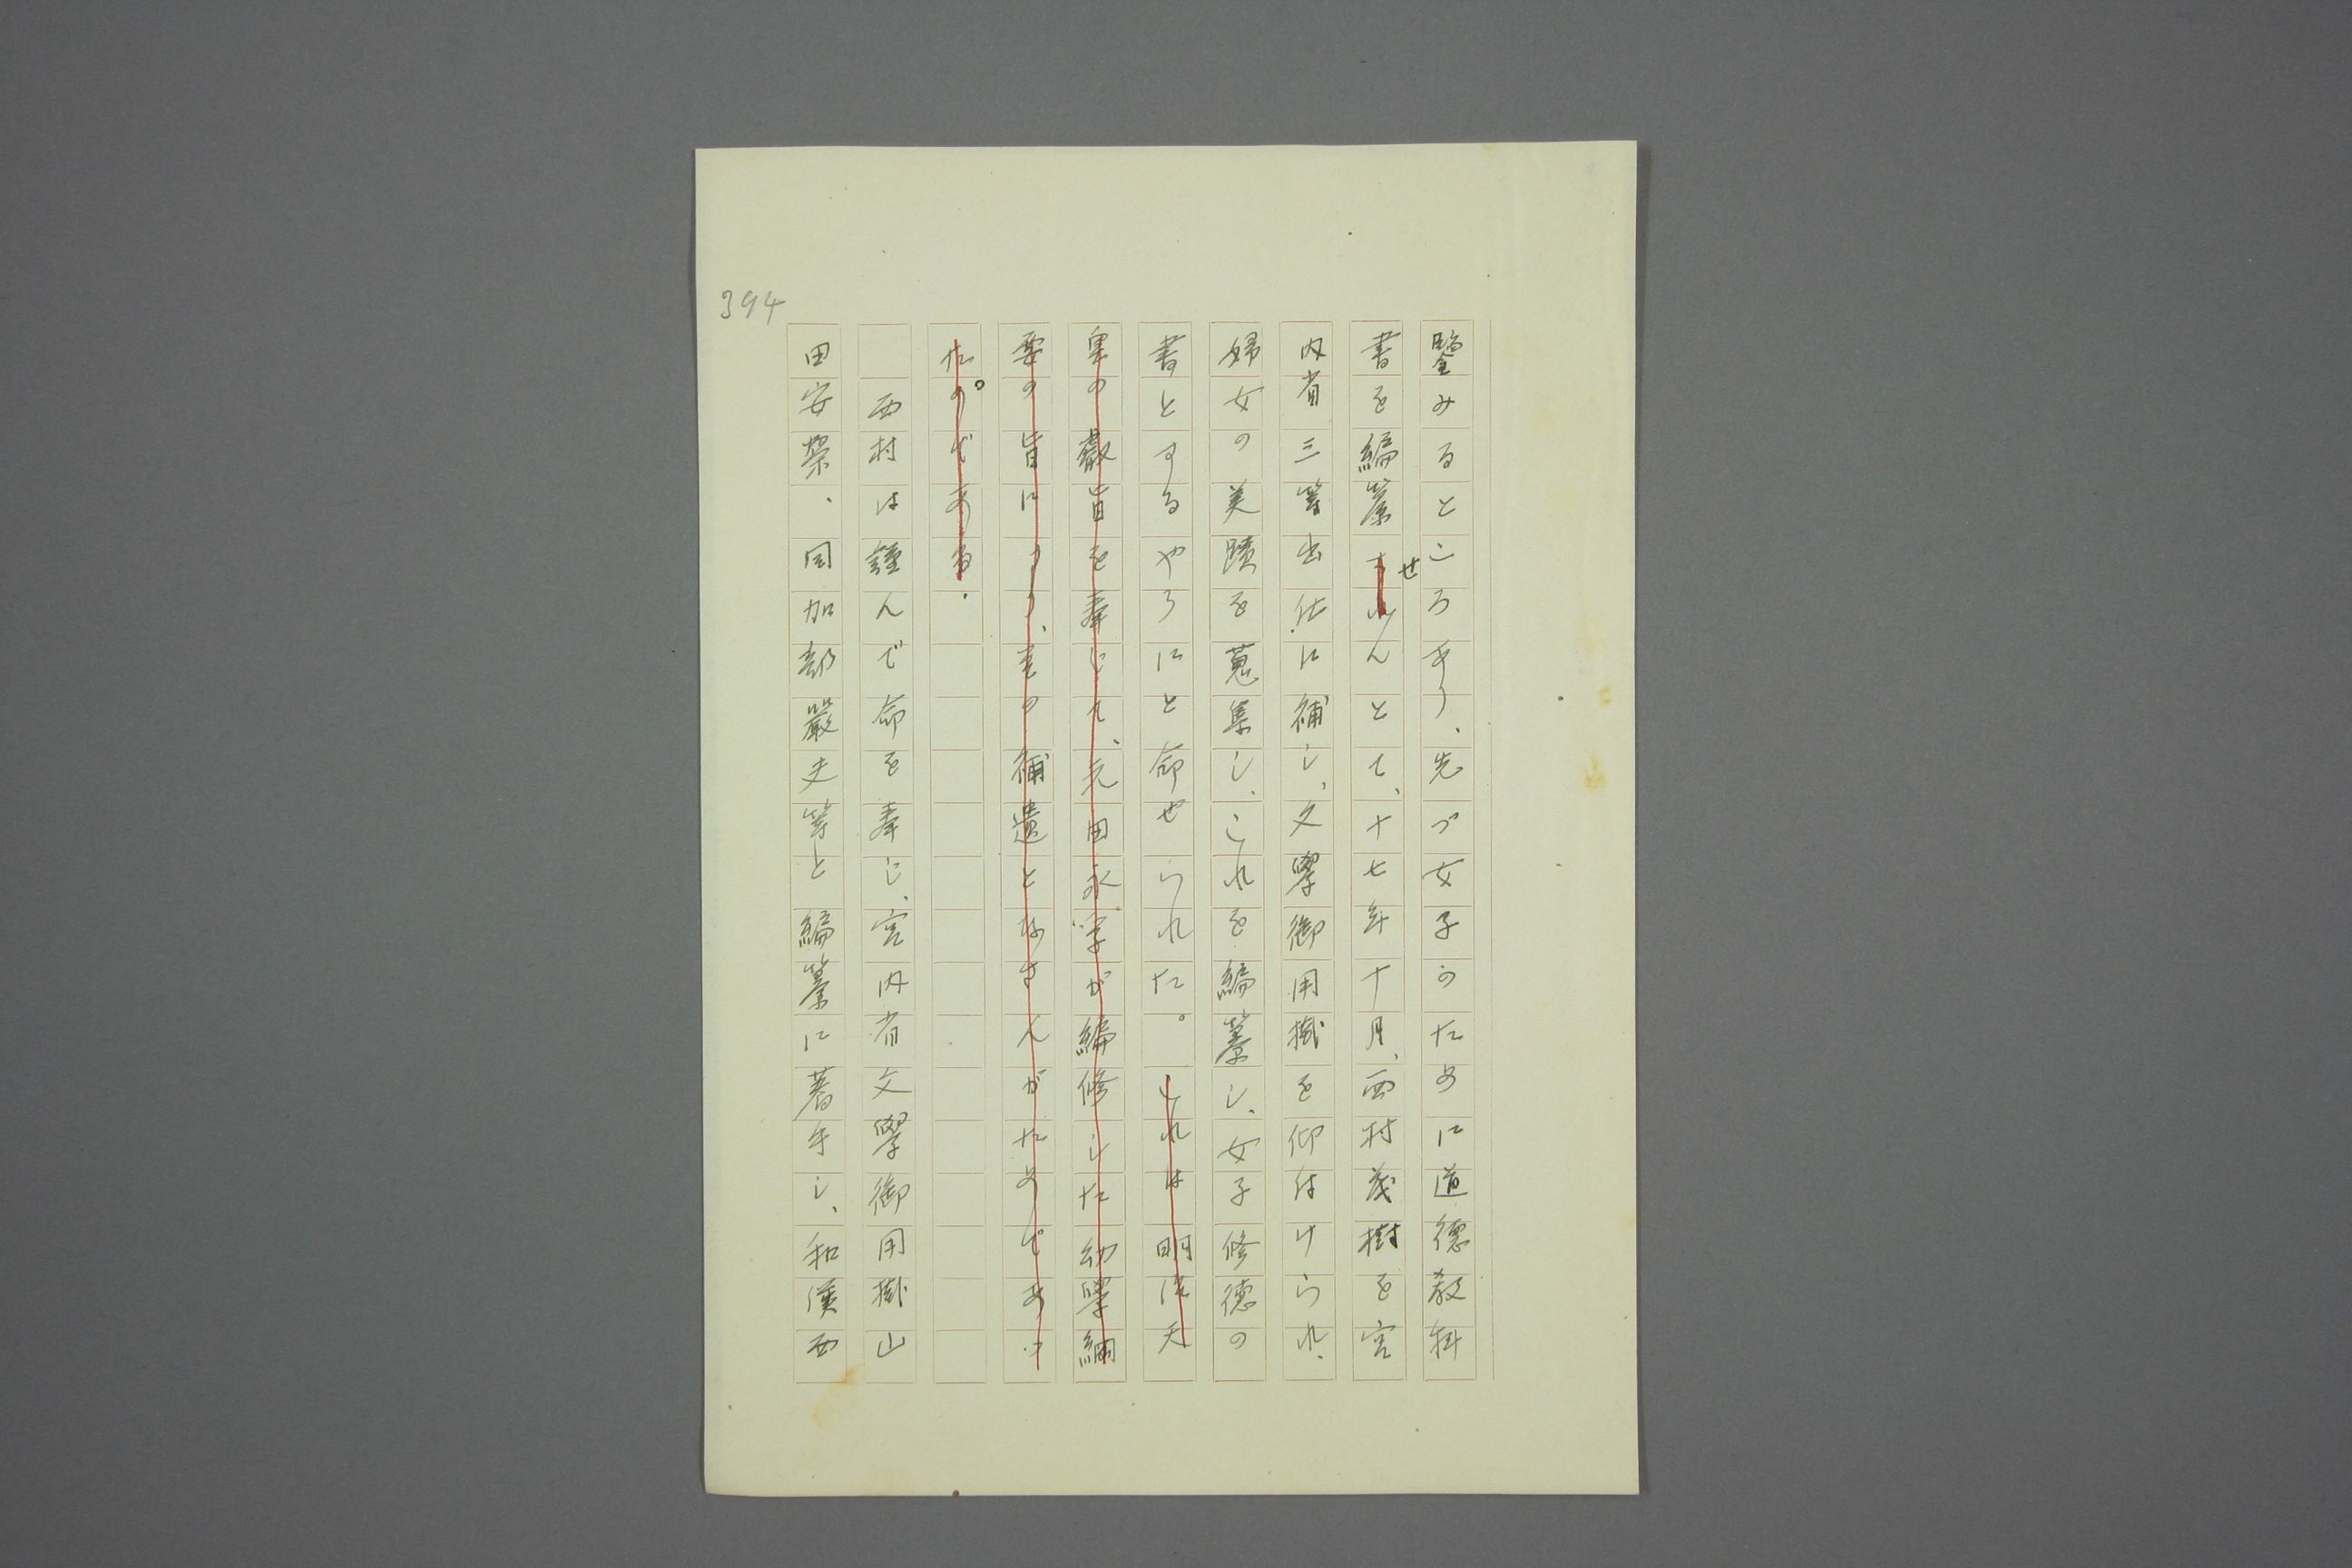 394
鑒みるところあり、先づ女子のために道德教科
書を編纂せんとて、十七年十月、西村茂樹を宮
内省三等出仕に補し、文學御用掛を仰付けられ、
婦女の美蹟を蒐集し、これを編纂し、女子修德の
書とするやうにと命ぜられた。これは明治天
皇の叡旨を奉じて、元田永孚が編修した幼學綱
要の旨により、その補遺となさんがためであつ
た。のである。
西村は謹んで命を奉じ、宮内省文學御用掛山
田安榮、同加部嚴夫等と編纂に著手し、和漢西